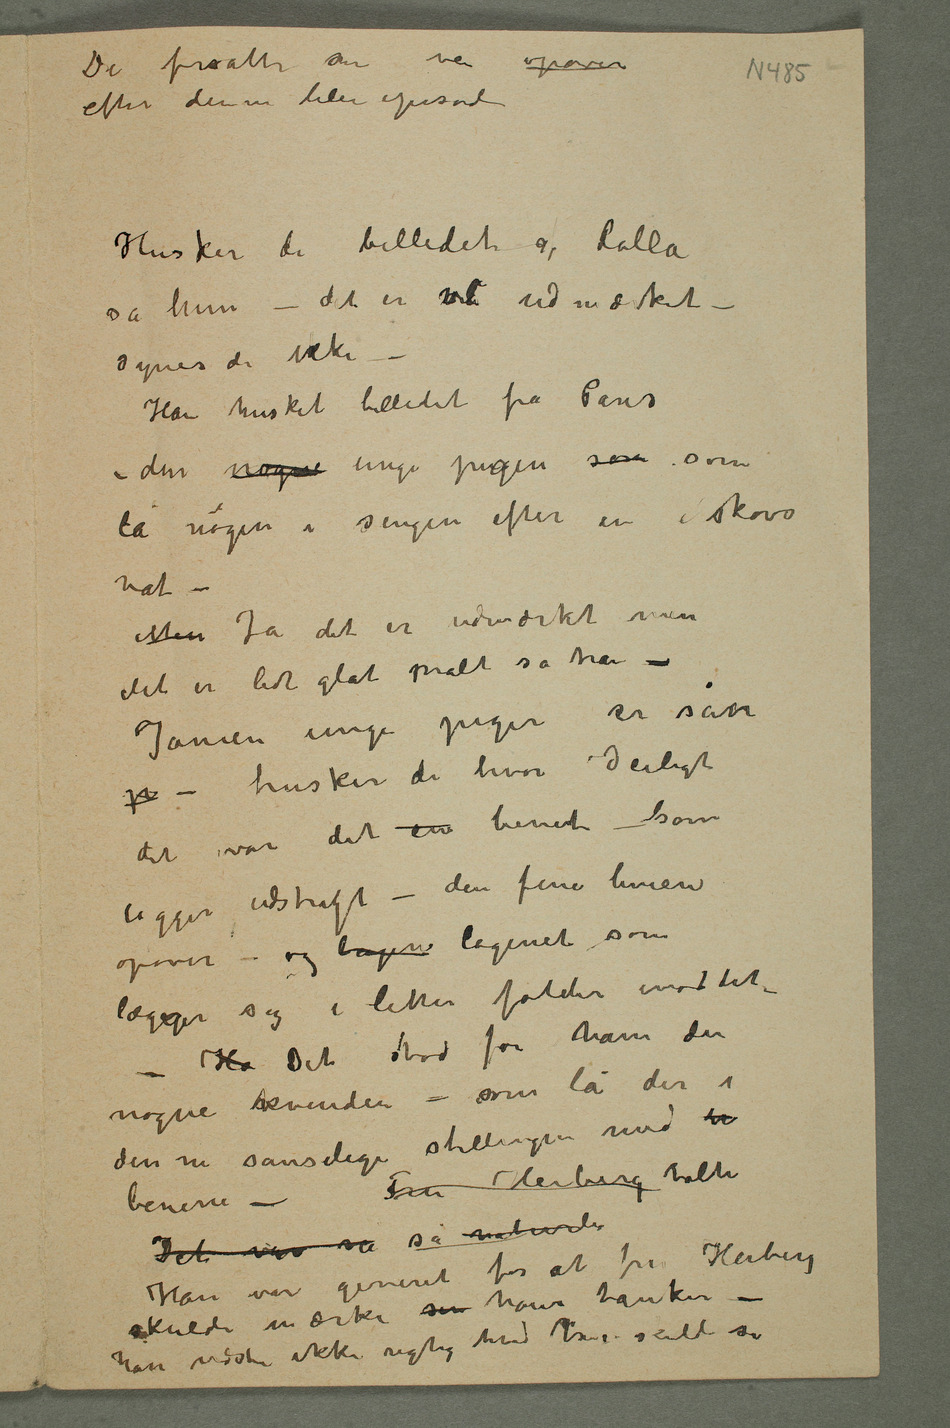 De fvsatte sin vei opover
N485
efter denne lille episode
Husker de billedet af Rolla
sa hun – det er vel udmærket –
synes de ikke –
Han husket billedet fra Paris
– den nøgne unge pigen som som
lå nøgen i sengen efter en elskovs
nat –
Men Ja det er udmærkt men
det er lidt glat malt sa han –
Jamen unge piger er sån
p – husker de hvor deiligt
det var det en benet – som
ligger udstragt – den fine linien
opover – og lagen lagenet som
lægger sig i lette folder imod det –
– Ha Det stod for ham den
nøgne kvinden – som lå der i
denne sanselige stillingen med be
benene – Fru Heiberg talte
Det var så så naturlig
Han var generet for at fru Heiberg
skulde mærke sin hans tanker –
han vidste ikke rigtig hvad han skulde si